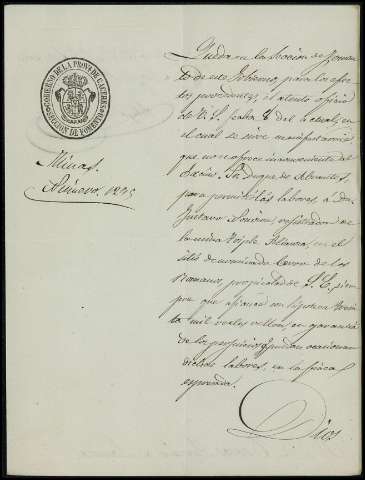 GOBIERNO DE LA PROVA DE CACERES
SECCION DE FOMENTO
Minas
Número 1825
Queda en la Seccion de Fomen-
to de este Gobierno, para los efec-
tos procedentes, el atento oficio
de V. S. fecha 8 del actual, en
el cual se sirve manifestarme
que no se ofrece inconveniente al
Excmo. Sr. Duque de Abrantes,
para permitir las labores, á don
Gustavo registrador de
la mina Triple Alianza, en el
sitio denominado Cerro de los
Romanos, propiedad de S. E., siem-
pre que afiance con hipoteca trein-
ta mil reales vellon, en garantia
de los perjuicios q. puedan ocasionar
dichas labores, en la finca
espresada.
Dios